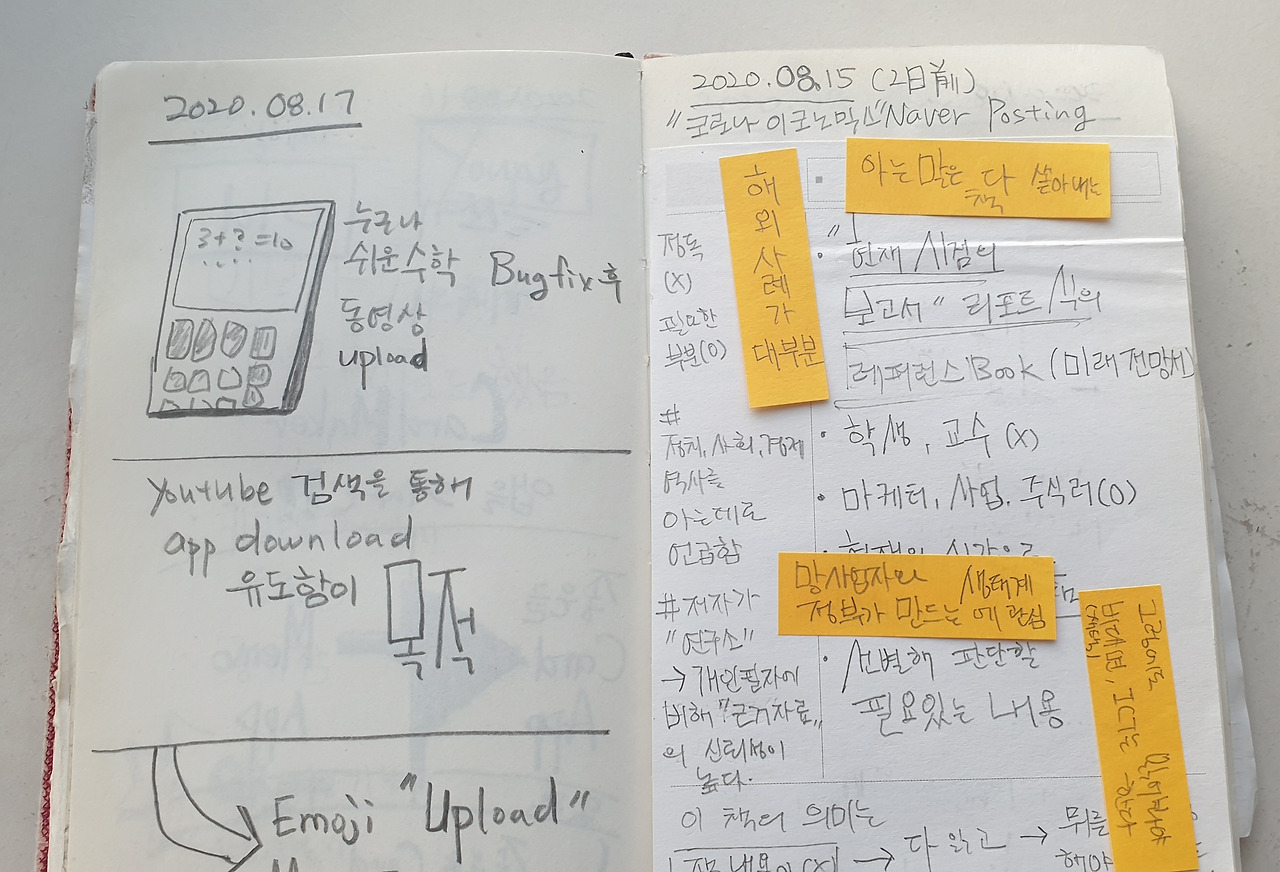 2020.08.17
3+?=10
누구나
쉬운수학
동영상
upload
Bugfix후
Youtube 검색을 통해
app download
유도함이
목적
Emoji "Upload"
2020.08.15 (2日前)
"코로나 이코노믹스" Naver Posting
해외사례가 대부분
아는 말은 다 쏟아내는
책
정독
(X)
필요한
부분(O)
#
정치, 사회, 경제
역사를
아는데로
언급함
# 저자가
"연구소"
→ 개인필자에
비해 "근거자료"
의 신뢰성이
높다.
• "현재 시점의
보고서" 리포트 식의
레퍼런스 Book (미래전망서)
• 학생, 교수 (X)
• 마케터, 사업, 주식러(O)
망사업자와 생태계
정부가 만드는 에 관심
• 선별해 판단할
필요있는 내용
비대면, ICT는
이 책의 의미는
→ 다 읽고 →
뭐를
해야